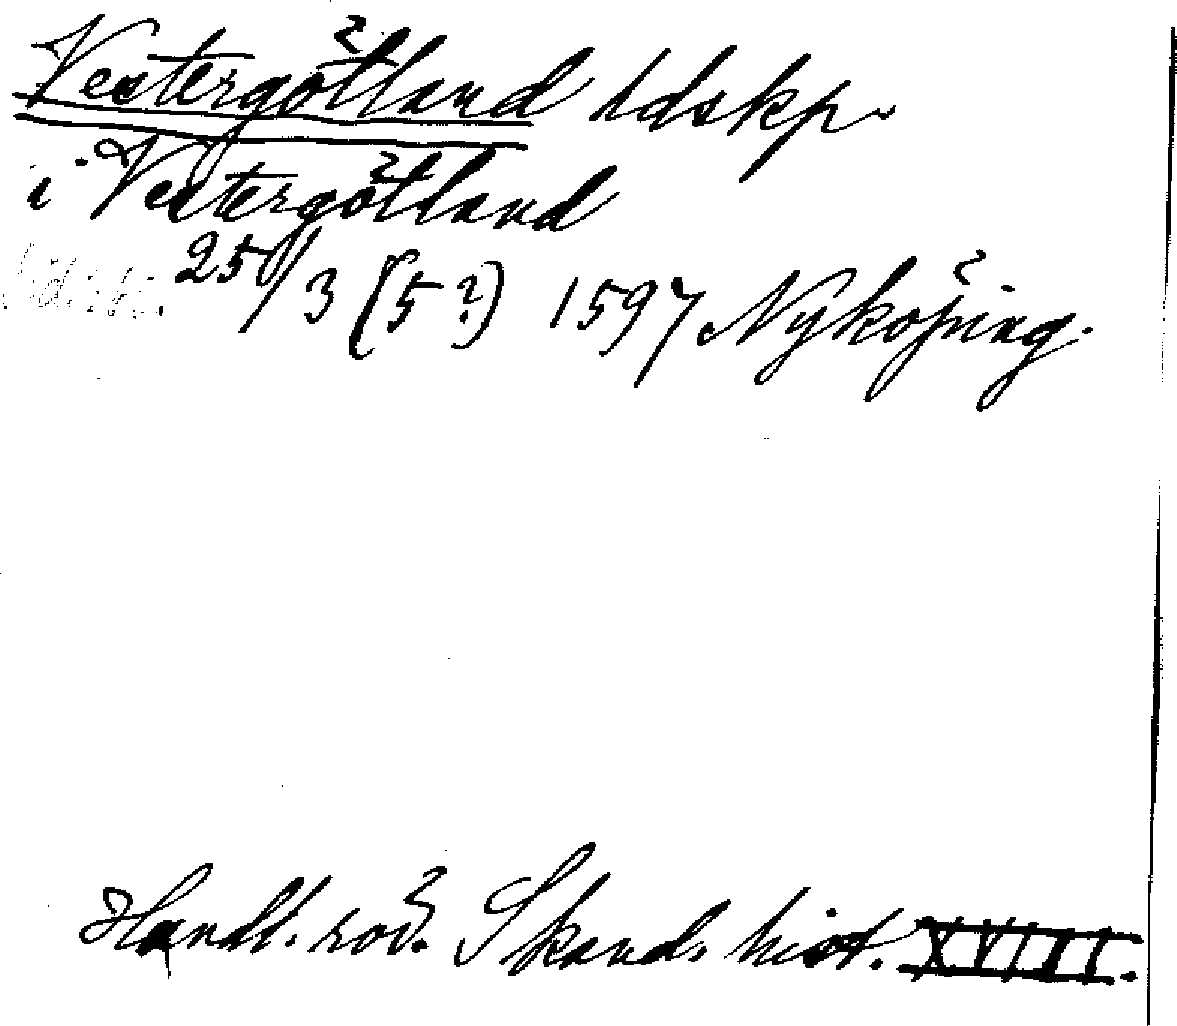 Vestergötland ldskp.
i Vestergötland
25/3 (5?) 1597 Nyköping.
Handl. rör. Skand. hist. XVIII.